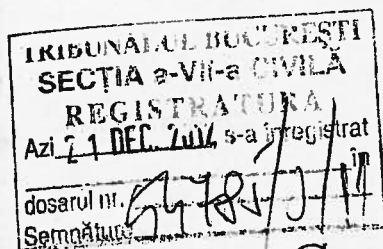 TRIBUNALUL BUCUREŞTI
SECŢIA a-VII-a CIVILĂ
REGISTRATURA
Azi 21 DEC. s-a înregistrat
în
dosarul nr.
Semnătura